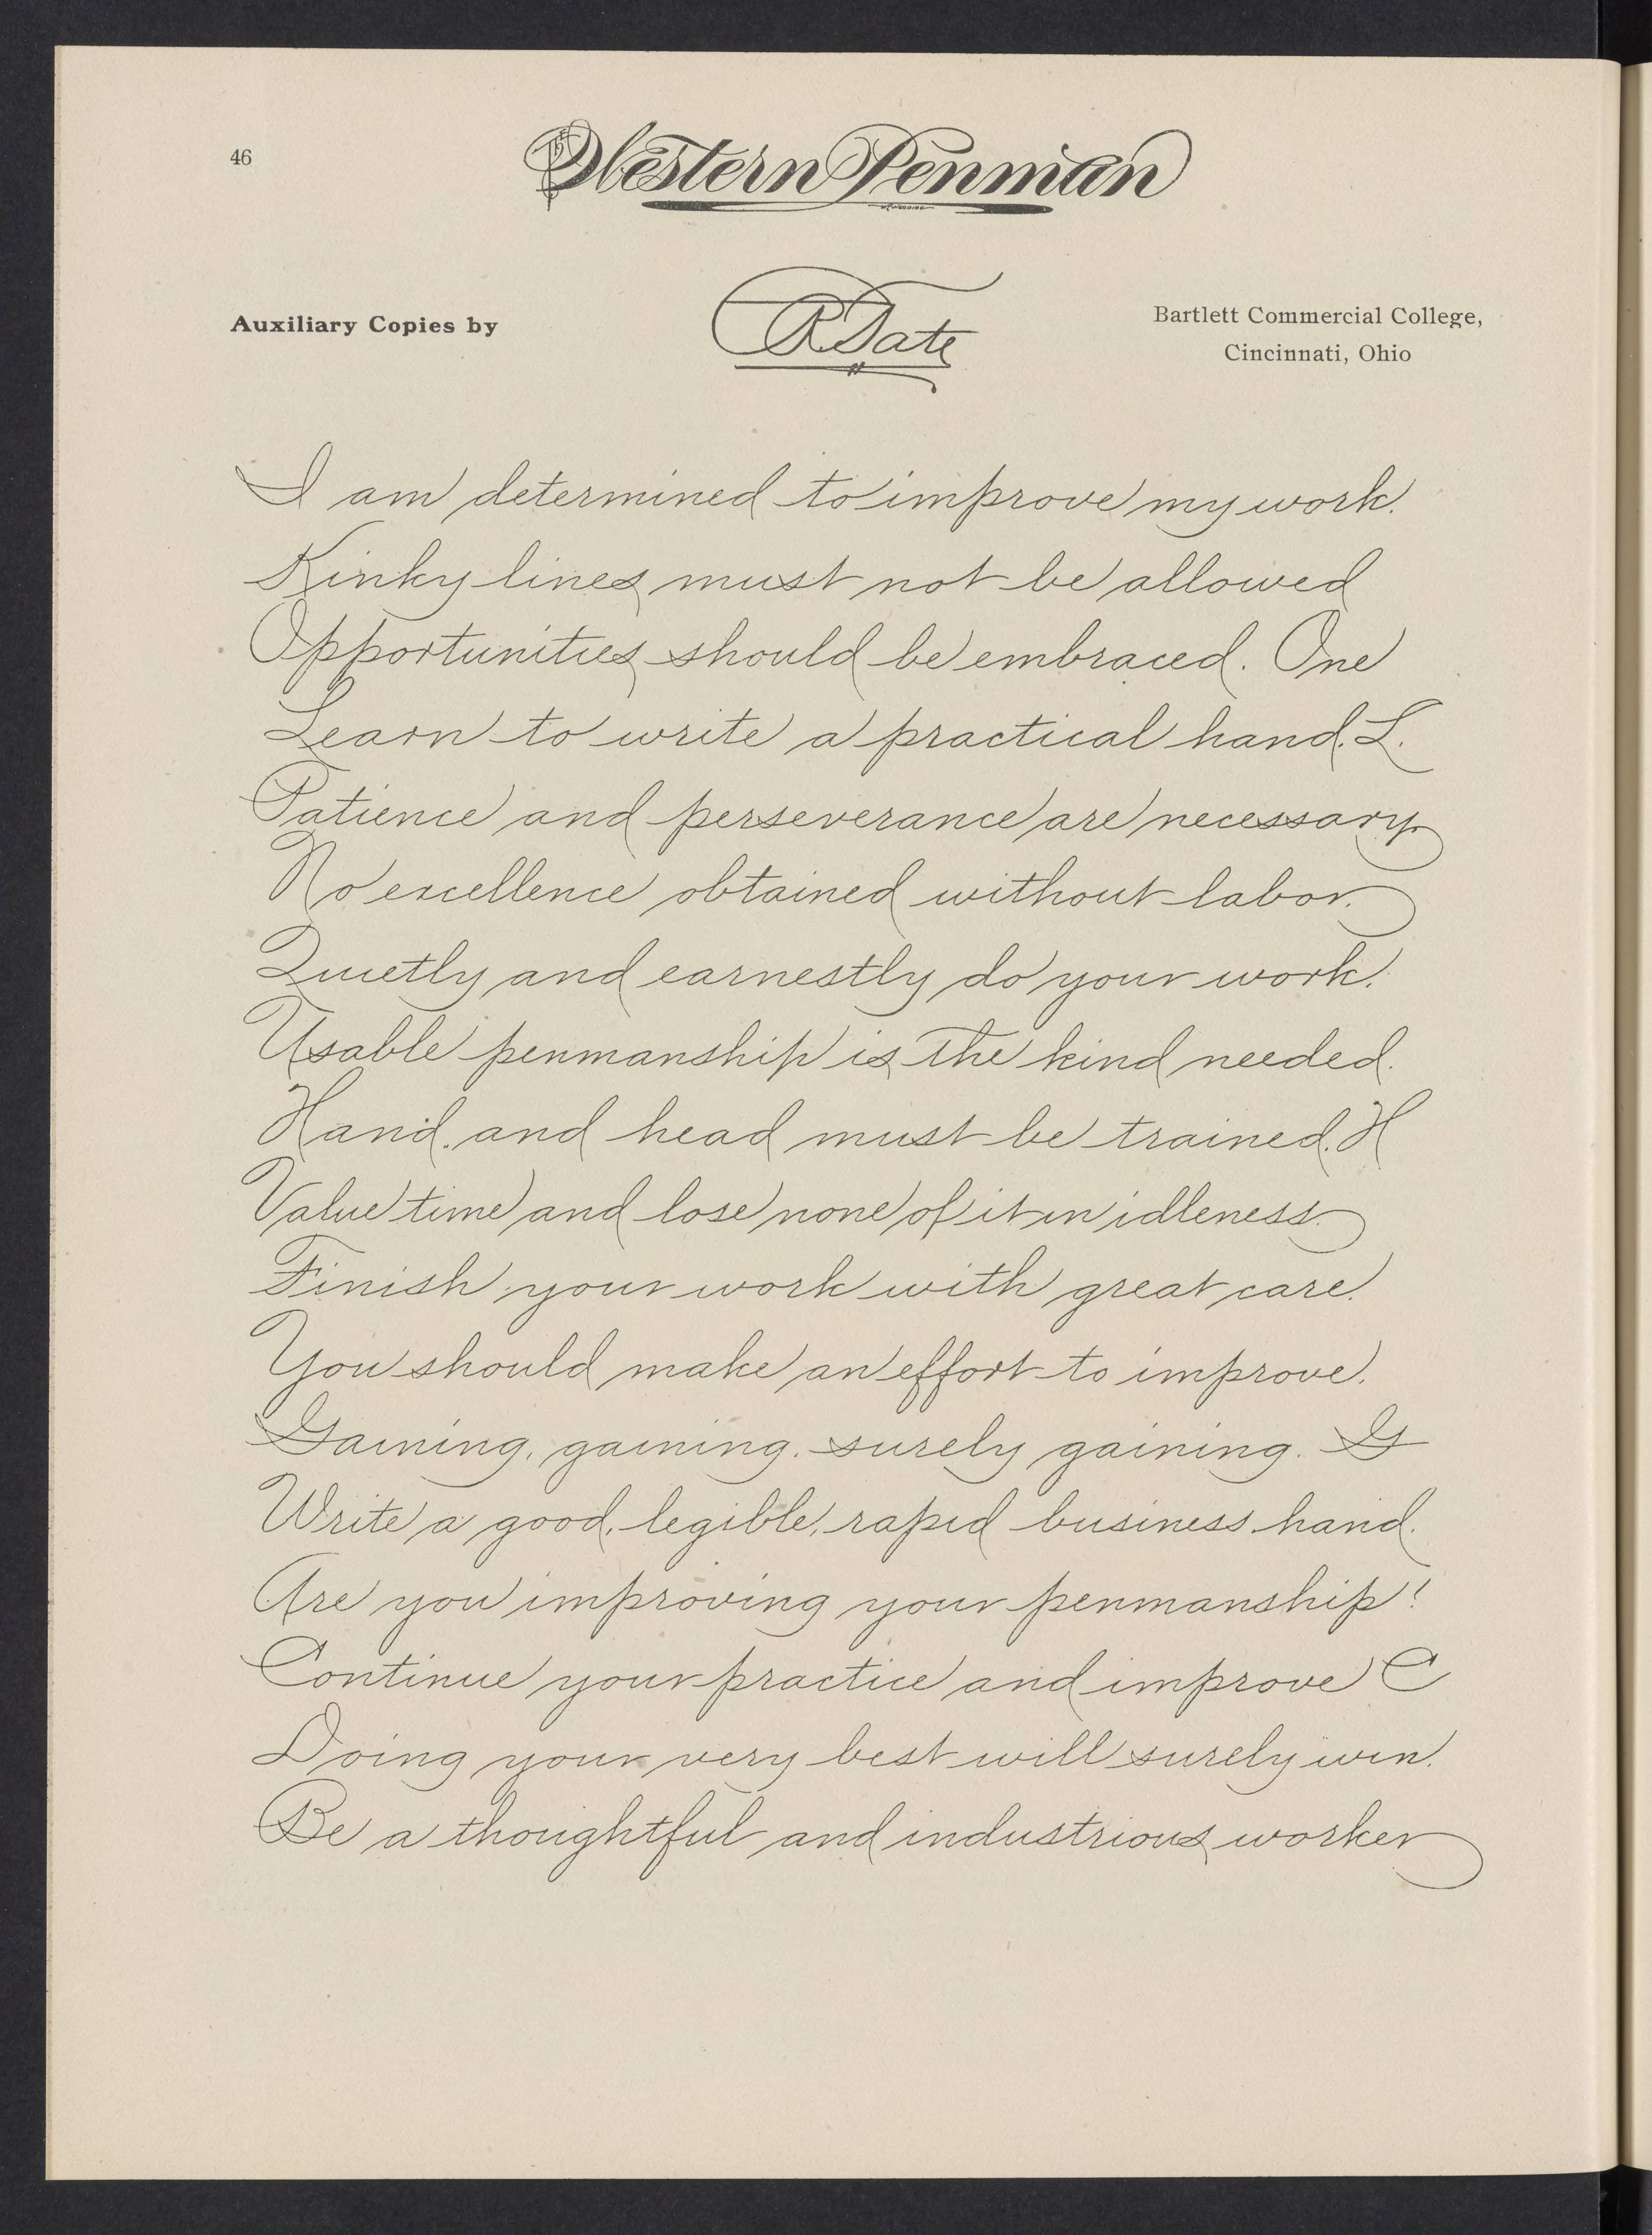 46
The Western Penman
Auxiliary Copies by
R Tate
Bartlett Commercial College,
Cincinnati, Ohio
I am determined to improve my work.
Kinky lines must not be allowed
Opportunities should be embraced. One
Learn to write a practical hand. L.
Patience and perseverance are necessary.
No excellence obtained without labor.
Quietly and earnestly do your work.
Usable penmanship is the kind needed.
Hand and head must be trained. H
Value time and lose none of it in idleness.
Finish your work with great care.
You should make an effort to improve.
Gaining, gaining, surely gaining. G
Write a good, legible, rapid business hand.
Are you improving your penmanship?
Continue your practice and improve C
Doing your very best will surely win.
Be a thoughtful and industrious worker